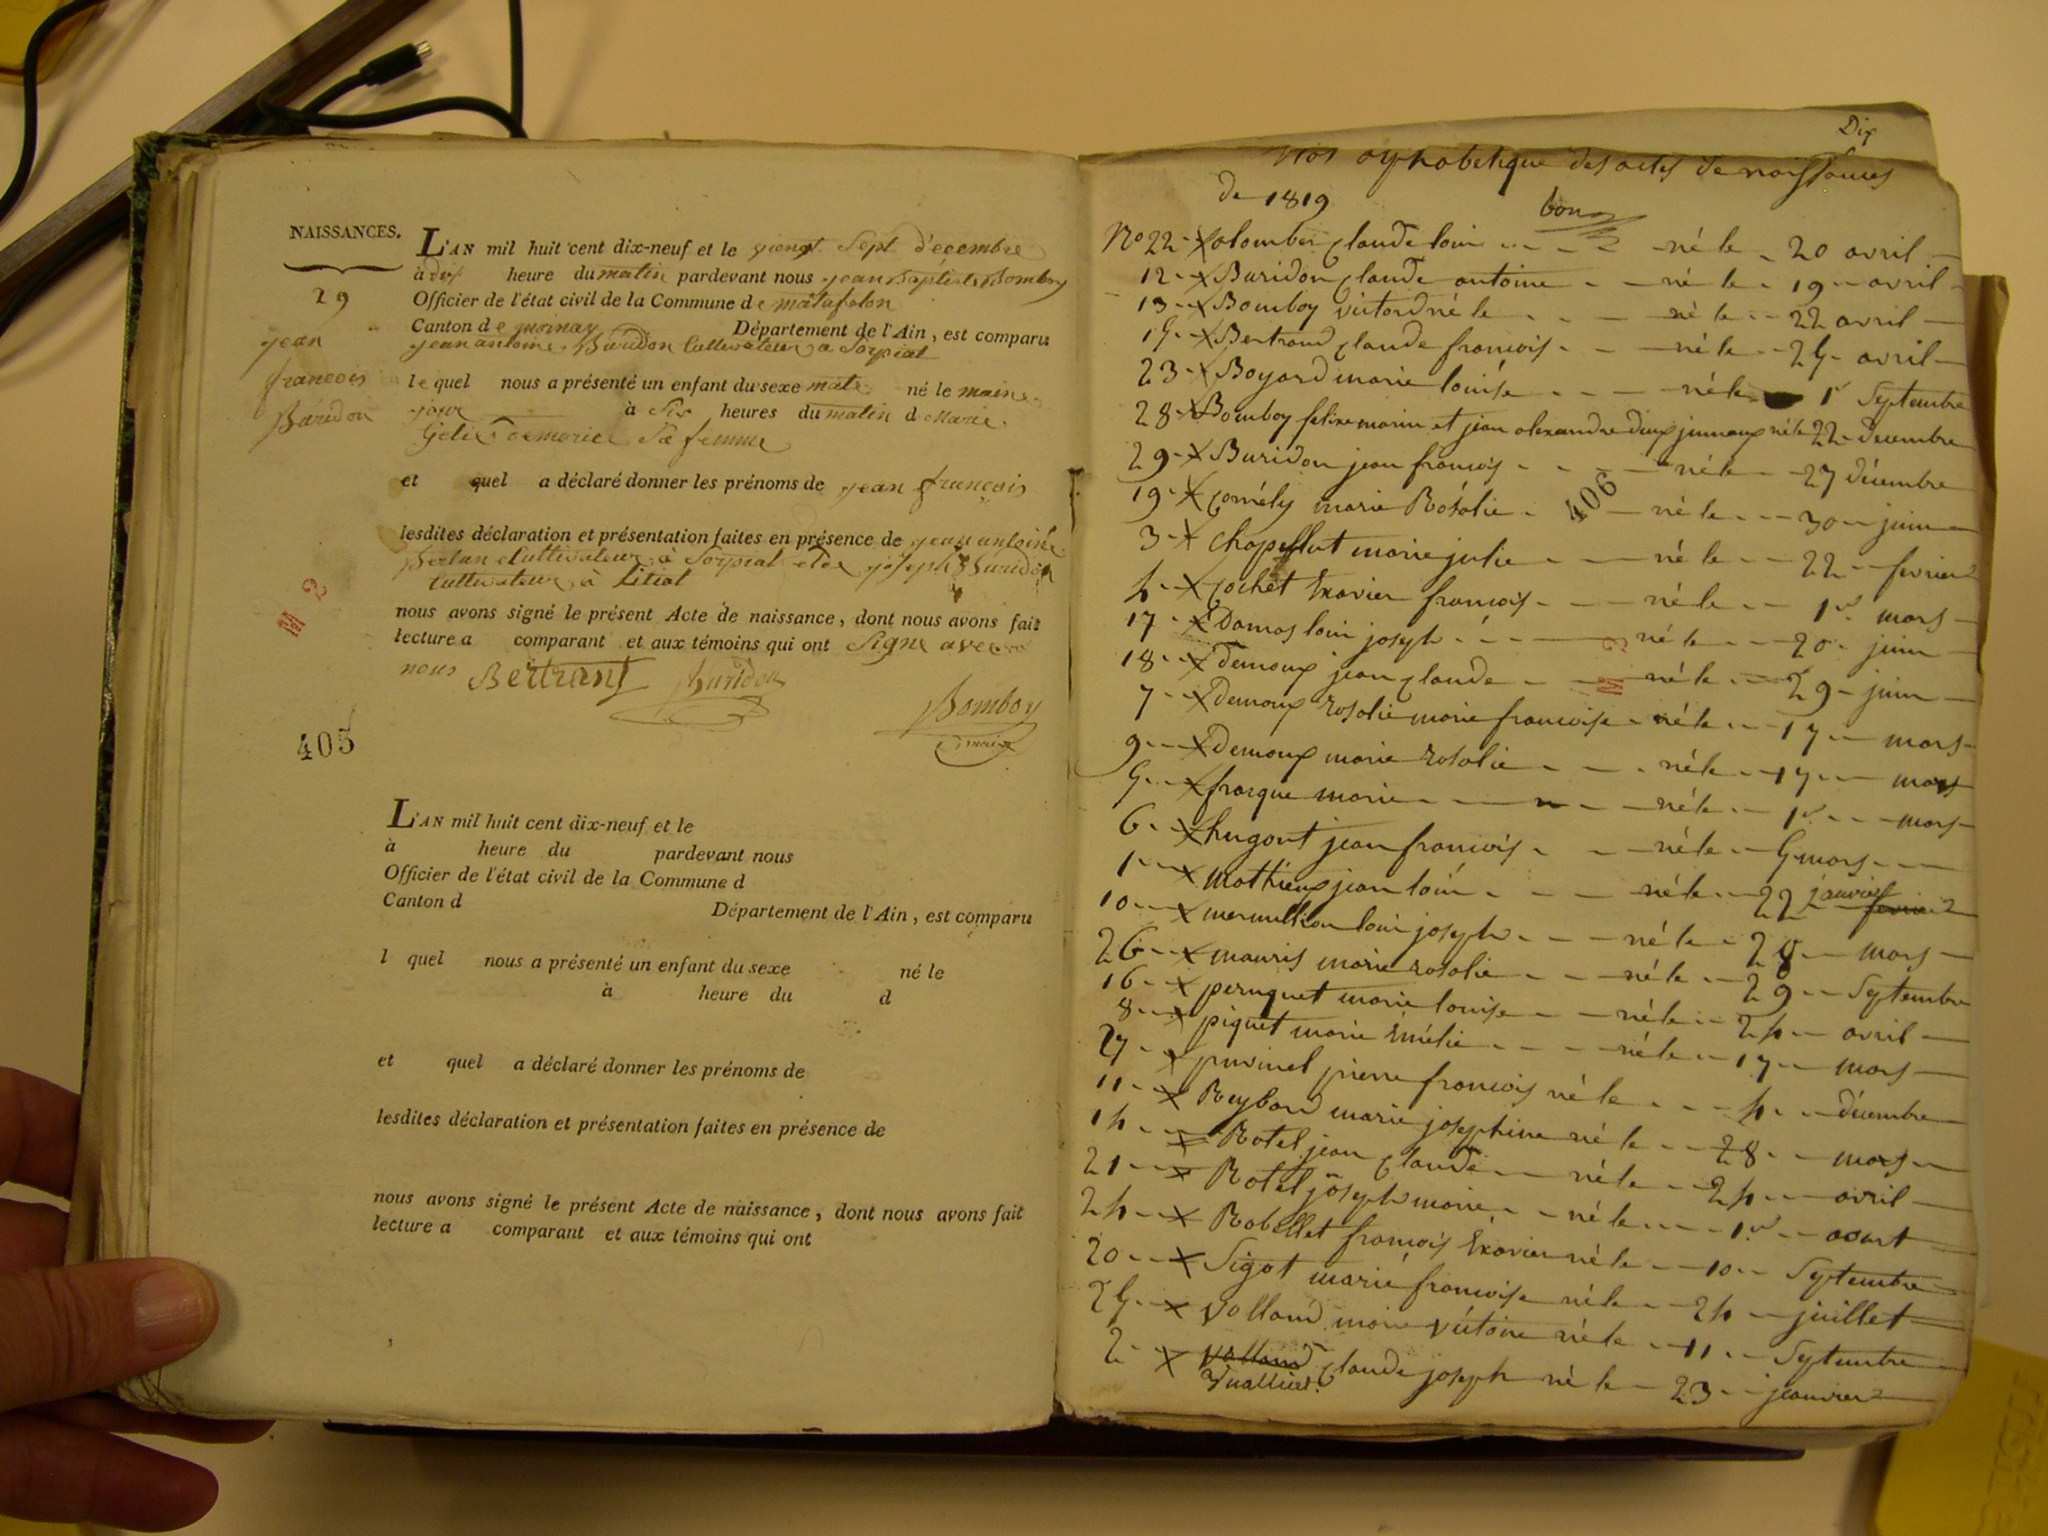 NAISSANCES.
29
jean
francois
Buridon
405
L'AN mil huit cent dix-neuf et le viengt Sept décembre
à dix heure du matin pardevant nous jean Baptiste Bomboy
Officier de l'état civil de la Commune de matafelon
Canton de Département de l'Ain, est comparu
jean antoine Buridon Cultivateur a Sorpiat
lequel nous a présenté un enfant du sexe male né le maime
jour à Six heures du matin d Marie
Sa femme
et quel a déclaré donner les prénoms de jean françois
lesdites déclaration et présentation faites en présence de jean antoine
Cultivateur à Sorpiat et de joseph Buridon
Cultivateur à
nous avons signé le présent Acte de naissance, dont nous avons fait
lecture a comparant et aux témoins qui ont Signe avec
nous Bertrant Buridon
Bomboy
maire
L'AN mil huit cent dix-neuf et le
à heure du pardevant nous
Officier de l'état civil de la Commune d
Canton d Département de l'Ain, est comparu
l quel nous a présenté un enfant du sexe né le
à heure du d
et quel a déclaré donner les prénoms de
lesdites déclaration et présentation faites en présence de
nous avons signé le présent Acte de naissance, dont nous avons fait
lecture a comparant et aux témoins qui ont
Dix
alphabetique des actes de naissances
de 1819
No 22 X Colomber Claude louis né le 20 avril
12 X Buridon Claude antoine né le 19 avril
13 X Bomboy né le né le 22 avril
15 X Bertrand Claude francois né le 25 avril
23 X Boyard marie louise né le 1er Septembre
28 X Bomboy felix marin et jean alexandre deux jumeaux né le 22 decembre
29 X Buridon jean francois né le 27 décembre
406
19 X Comély marie Rosalie né le 30 juin
3 X Chapellut marie julie né le 22 fevrier
4 X Cochet Exavier francois né le 1er mars
17 X Damas louis joseph né le 20 juin
18 X demoux jean Claude né le 29 juin
7 X demoux rosalie marie francoise né le 17 mars
9 X demoux marie rosalie né le 17 mars
5 X frasque marie né le 1er mars
6 X hugont jean francois né le 5 mars
1 X Mathieux jean louis né le 22 janvier fevrier
10 X mermillion louis joseph né le 28 mars
26 X mauris marie rosalie né le 29 Septembre
16 X peruquet marie louise né le 24 avril
8 X piquet marie Emélie né le 17 mars
27 X pierre francois né le 4 décembre
11 X Reybard marie josephine né le 28 mars
14 X Rotel jean Claude né le 24 avril
21 X Rotel joseph marie né le 1er aout
24 X Robellet francois Exavier né le 10 Septembre
20 X Sigot marie francoise né le 24 juillet
25 X Volland marie victoire né le 11 Septembre
2 X Volland Claude joseph né le 23 jeanvier